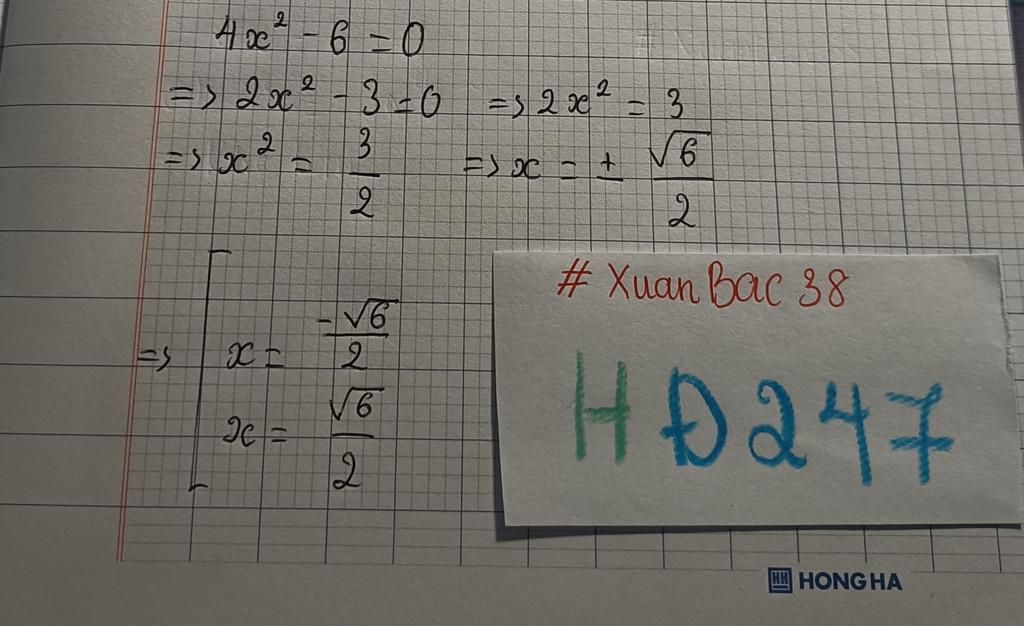 4x² - 6 = 0
=> 2x² - 3 = 0 => 2x² = 3
=> x² = 3/2 => x = ± √6/2
=> [ x = -√6/2
x = √6/2
# XuanBac 38
HĐ247
HH HONG HA